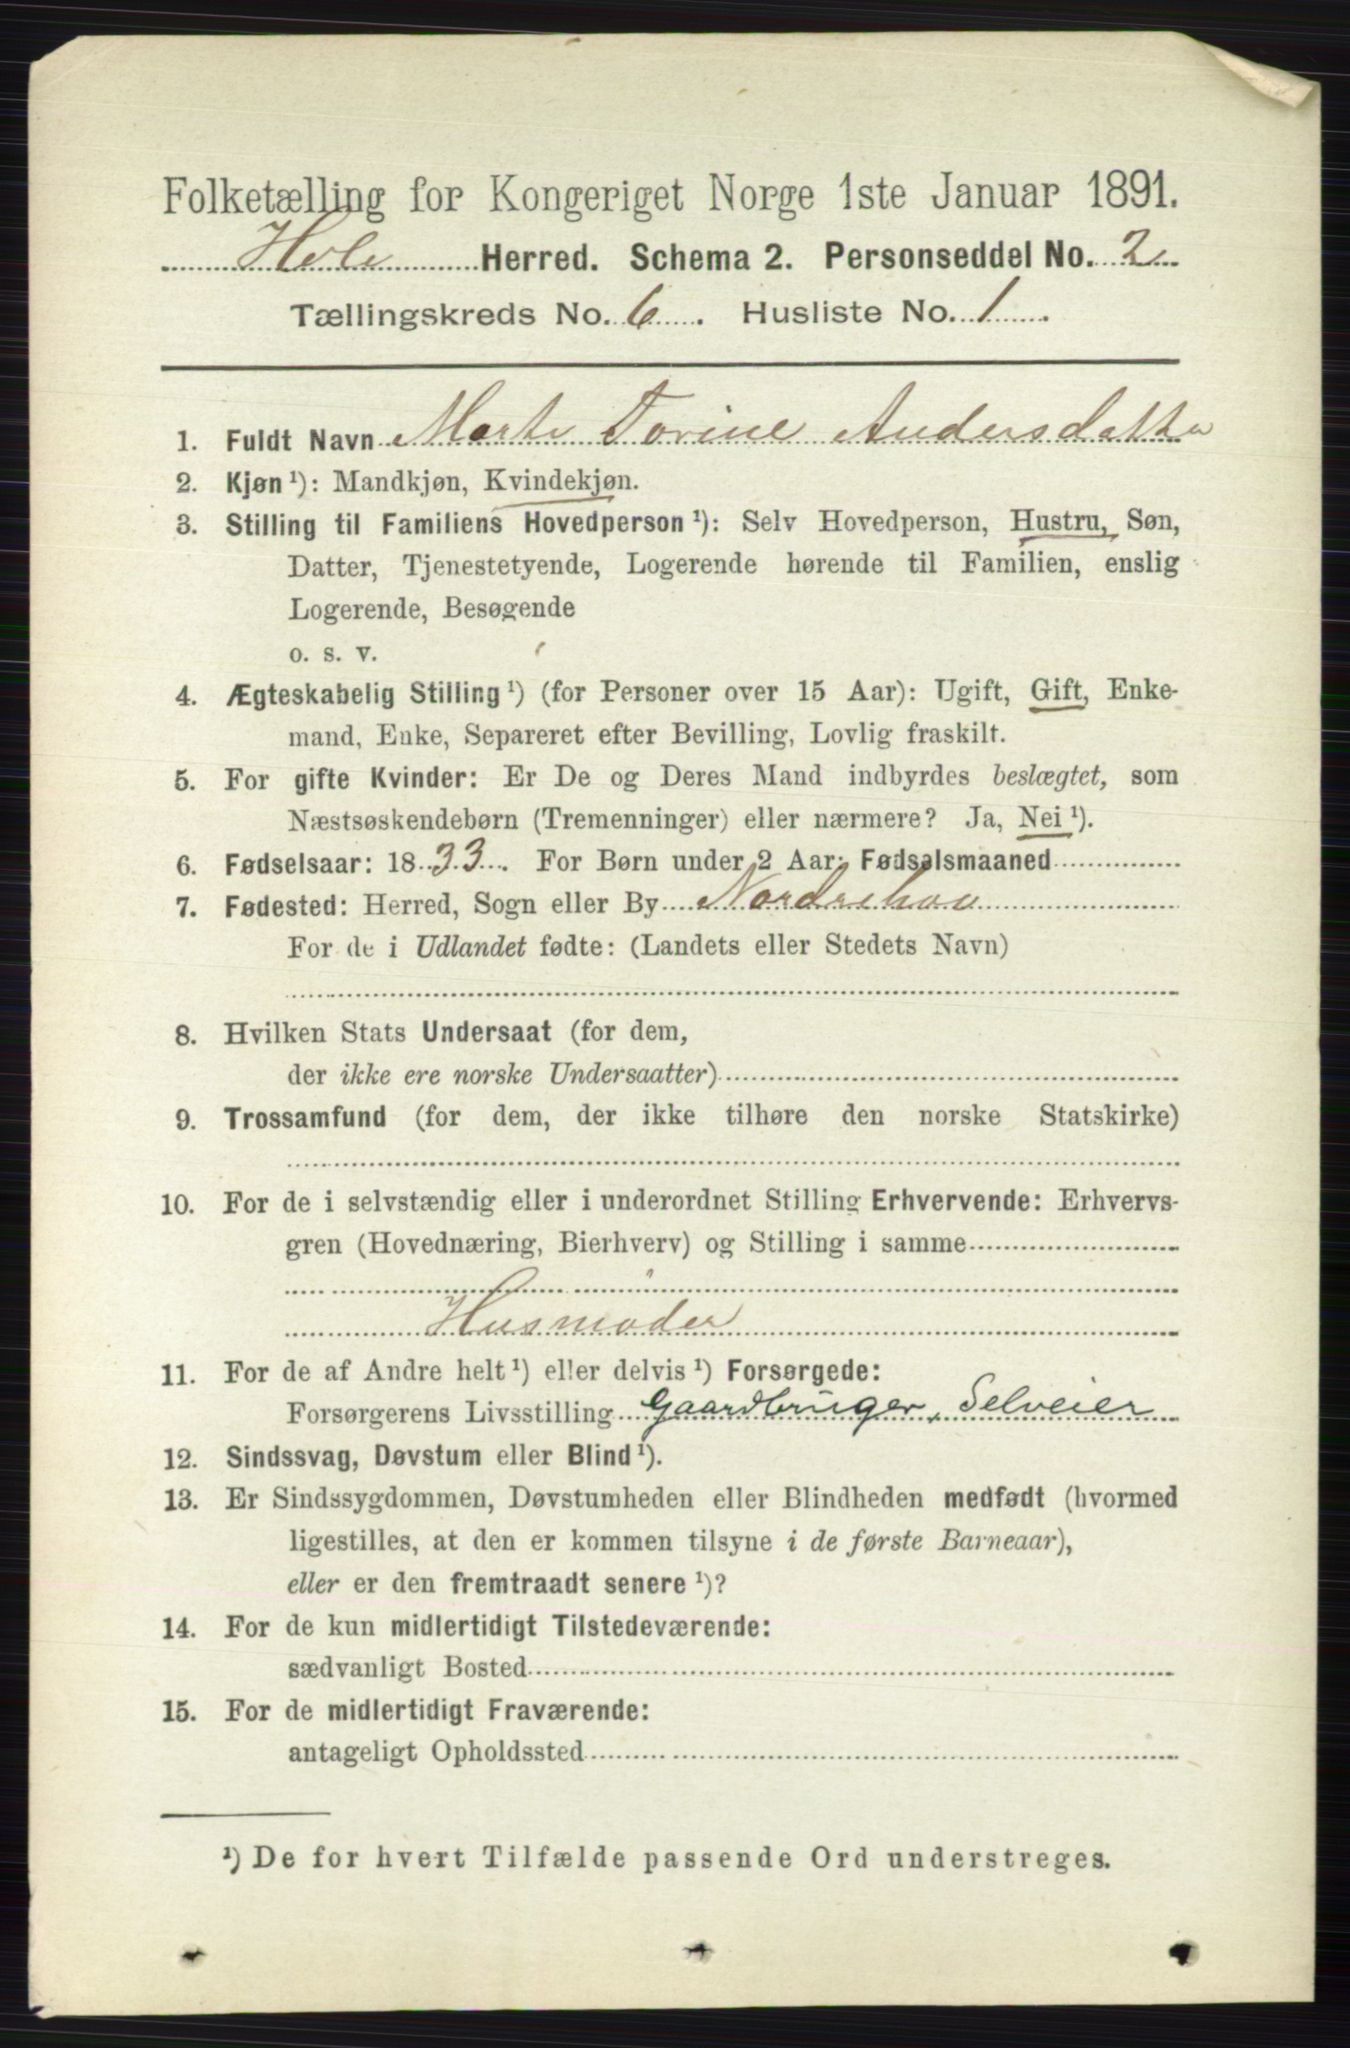 Folketælling for Kongeriget Norge 1ste Januar 1891.
Hole Herred. Schema 2. Personseddel No. 2
Tællingskreds No. 6. Husliste No. 1.
1. Fuldt Navn Marte Torine Andersdatter
2. Kjøn ¹): Mandkjøn, Kvindekjøn.
3. Stilling til Familiens Hovedperson ¹): Selv Hovedperson, Hustru, Søn,
Datter, Tjenestetyende, Logerende hørende til Familien, enslig
Logerende, Besøgende
o. s. v.
4. Ægteskabelig Stilling ¹) (for Personer over 15 Aar): Ugift, Gift, Enke-
mand, Enke, Separeret efter Bevilling, Lovlig fraskilt.
5. For gifte Kvinder: Er De og Deres Mand indbyrdes beslægtet, som
Næstsøskendebørn (Tremenninger) eller nærmere? Ja, Nei ¹).
6. Fødselsaar: 1833. For Børn under 2 Aar: Fødselsmaaned
7. Fødested: Herred, Sogn eller By Norderhov
For de i Udlandet fødte: (Landets eller Stedets Navn)
8. Hvilken Stats Undersaat (for dem,
der ikke ere norske Undersaatter)
9. Trossamfund (for dem, der ikke tilhøre den norske Statskirke)
10. For de i selvstændig eller i underordnet Stilling Erhvervende: Erhvervs-
gren (Hovednæring, Bierhverv) og Stilling i samme
Husmoder
11. For de af Andre helt ¹) eller delvis ¹) Forsørgede:
Forsørgerens Livsstilling Gaardbruger, Selveier
12. Sindssvag, Døvstum eller Blind ¹).
13. Er Sindssygdommen, Døvstumheden eller Blindheden medfødt (hvormed
ligestilles, at den er kommen tilsyne i de første Barneaar),
eller er den fremtraadt senere ¹)?
14. For de kun midlertidigt Tilstedeværende:
sædvanligt Bosted
15. For de midlertidigt Fraværende:
antageligt Opholdssted
¹) De for hvert Tilfælde passende Ord understreges.